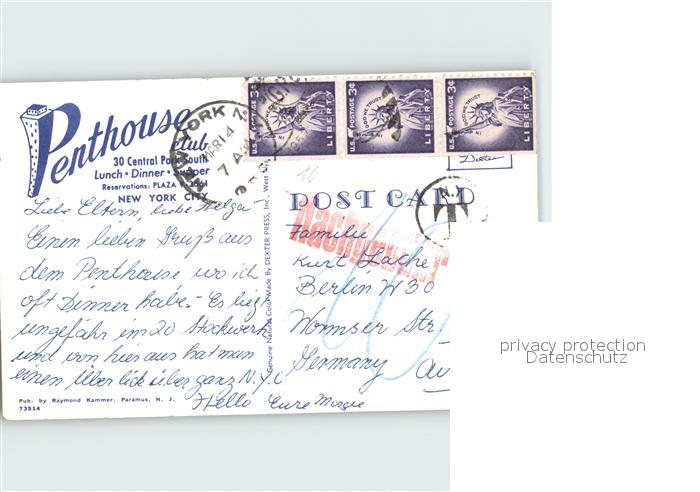 Penthouse
club
30 Central Park South
Lunch • Dinner • Supper
Reservations: PLAZA
NEW YORK CITY
Liebe Eltern, liebe Helga
Einen lieben Gruß aus
dem Penthouse wo ich
oft Dinner habe. Es liegt
ungefähr im 20 Stockwerk
und von hier aus hat man
einen Überblick über ganz N.Y.C
Hello Eure
Pub. by Raymond Kammer, Paramus, N. J.
73514
Genuine Natural Color Made By DEXTER PRESS, Inc. West
MAR 14
7 AM
U.S. POSTAGE 3¢
IN GOD WE TRUST
LIBERTY
U.S. POSTAGE 3¢
IN GOD WE TRUST
LIBERTY
U.S. POSTAGE 3¢
IN GOD WE TRUST
LIBERTY
Dexter
10
POST CARD
N.Y.
T
Nachgebühr
Familie
Kurt
Berlin W 30
Wormser Str
Germany
privacy protection
Datenschutz